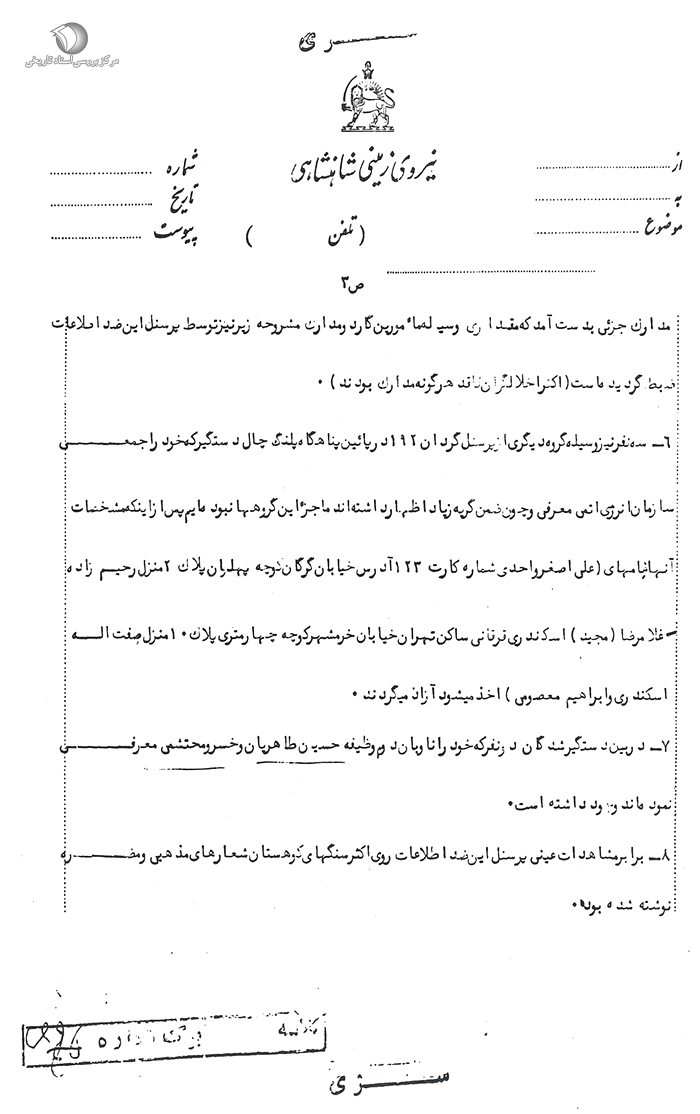 مرکز بررسی اسناد تاریخی
سری
نیروی زمینی شاهنشاهی
از
به
موضوع
شماره
تاریخ
پیوست
(تلفن )
ص ۳
مدارك جزئی بدست آمد که مقداری وسیله مأمورین گارد و مدارك مشروحه زیر نیز توسط پرسنل این ضد اطلاعات
ضبط گردیده است (اکثر اخلالگران فاقد هرگونه مدارك بودند) ۰
۶ـ سه نفر نیز وسیله گروه دیگری از پرسنل گردان ۱۹۲ در پائین پناهگاه پلنگ چال دستگیر که خود را جمعی
سازمان انرژی اتمی معرفی و چون ضمن گریه زیاد اظهار داشته اند ما جزء این گروهها نبوده ایم پس از اینکه مشخصات
آنها بنامهای (علی اصغر واحدی شماره کارت ۱۲۳ آدرس خیابان گرگان کوچه پهلوان پلاك ۲ منزل رحیم زاده
ـ غلامرضا (مجید) اسکندری ساکن تهران خیابان خرمشهر کوچه چهارمتری پلاك ۱۰ منزل صفت اله
اسکندری و ابراهیم معصومی) اخذ میشود آزاد میگردند ۰
۷ـ در بین دستگیر شدگان دو نفر که خود را ناوبان دوم وظیفه حسین طاهریان و خسرو محتشمی معرفی
نموده اند وجود داشته است ۰
۸ـ برابر مشاهدات عینی پرسنل این ضد اطلاعات روی اکثر سنگهای کوهستان شعارهای مذهبی و مضره
نوشته شده بود ۰
سری